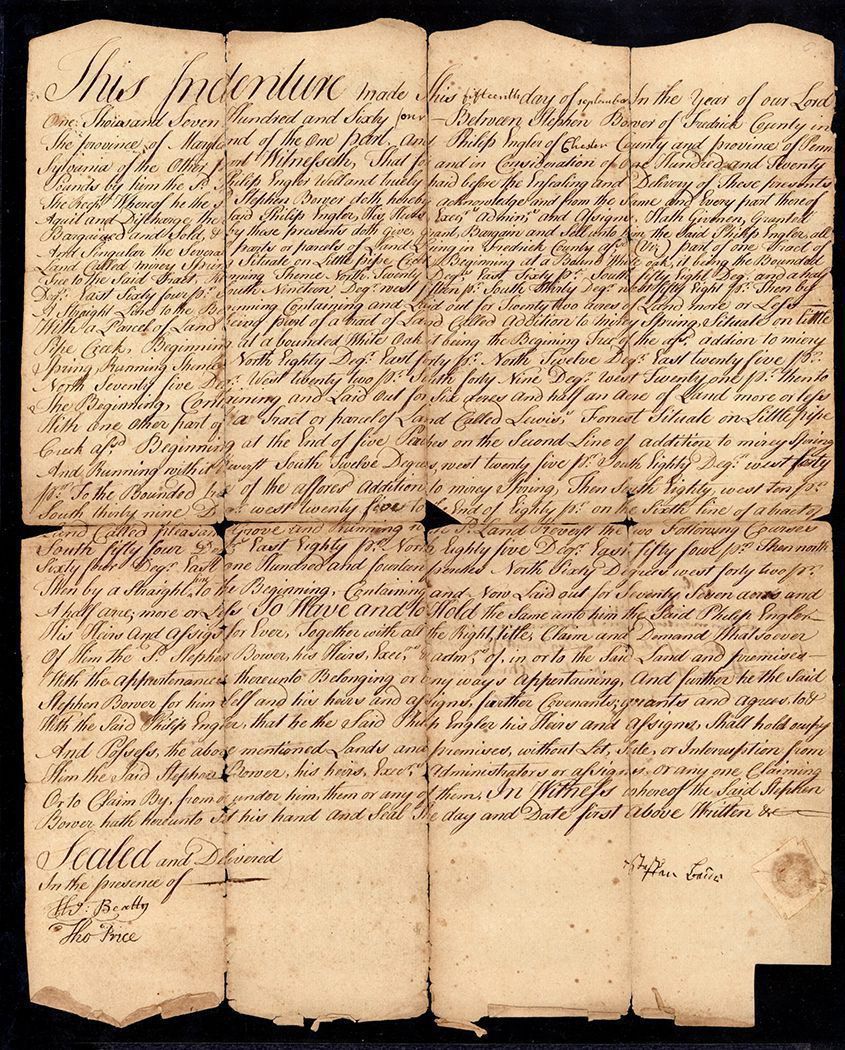 This Indenture made this fifteenth day of september In the Year of our Lord
One Thousand Seven Hundred and Sixty four Between Stephen Bower of Fredrick County in
The province of Maryland of the One part, And Philip Engler of Chester County and province of Penn
Sylvania of the Other part Witnesseth, That for and in Consideration of One Hundred and Seventy
Pounds by him the Sd. Philip Engler Well and truely paid before the Ensealing and Delivery of These presents
The Receipt Whereof he the Sd. Stephen Bower doth hereby acknowledge and from the Same and Every part thereof
Aquit and Discharge, the Said Philip Engler, His Heirs Execrs. Adminrs. and Assigns. Hath Givenen, Granted
Bargained and Sold, & by these presents doth Give, Grant, Bargain and Sell unto him the Said Philip Engler, all
And Singular the Several parts or parcels of Land Lying in Fredrick County afsd. Viz: part of one Tract of
Land Called mirey Spring Situate on Little pipe Creek Beginning at a Bound White oak, it being the Bounded
Tree to the Said Tract, Running Thence North Twenty Degrs. East Sixty ps. South fifty Eight Degr. and a half
Degr. East Sixty four ps. South Nineteen Degrs. west fifteen ps. South thirty Degr. west fifty Eight ps. Then by
A Straight Line to the Beginning Containing and Laid out for Twenty two acres of Land more or Less
With a Parcel of Land being part of a tract of Land Called Addition to mirey Spring, Situate on Little
Pipe Creek, Beginning at a bounded White Oak it being the Begining Tree of the afsd. addion to miery
Spring Running thence North Eighty Degs. East forty ps. North Twelve Degs. East twenty five ps.
North Seventy five Degs. West twenty two ps. South forty Nine Degs. West Twenty one ps. then to
The Beginning, Containing and Laid out for Six Acres and half an Acre of Land more or less
With one other part of a Tract or parcel of Land Called Lewis's Forrest Situate on Little pipe
Creek afsd. Beginning at the End of five Perches on the Second Line of addition to mirey Spring
And Running with it Reverst South Twelve Degrees, west twenty five ps. South Eighty Degs. west forty
ps. To the Bounded tree of the affores Addition to mirey Spring, Then South Eighty, west ten ps.
South thirty nine Degs. west twenty five to End of Eighty ps. on the Sixth Line of a tract of
Land Called pleasant Grove and Running with sd. Land Reverst the two Following Courses
South fifty four Degs. East Eighty ps. North Eighty five Degs. East fifty four ps. Then north
Sixty four Degs. East one Hundred and fourteen perches North Sixty Degrees west forty two ps.
then by a Straight line to the Beginning, Containing and Now Laid out for Seventy Seven acres and
A half acre, more or Less To Have and to Hold the Same unto him the Said Philip Engler
His Heirs And Assigns for Ever, Together with all the Right, title, Claim and Demand Whatsoever
Of Him the Sd. Stephen Bower, his Heirs, Execrs. & admrs. of, in or to the Said Land and premises
With the appurtenances thereunto Belonging or any ways Appertaining, And further he the Said
Stephen Bower for him Self and his heirs and assigns, further Covenants, grants and agrees, to &
With the Said Philip Engler, that he the Said Philip Engler his Heirs and Assigns, Shall hold ocupy
And Possess, he above mentioned Lands and premises, without Let, Sute, or Interruption from
Him the Said Stephen Bower, his heirs, Execrs. Administrators or assigns, or any one Claiming
Or to Claim By, from or under him, them or any of them, In Witness whereof the Said Stephen
Bower hath hereunto Set his hand and Seal the day and Date first Above Written &c
Sealed and Delivered
In the presence of
Beatty
Tho Price